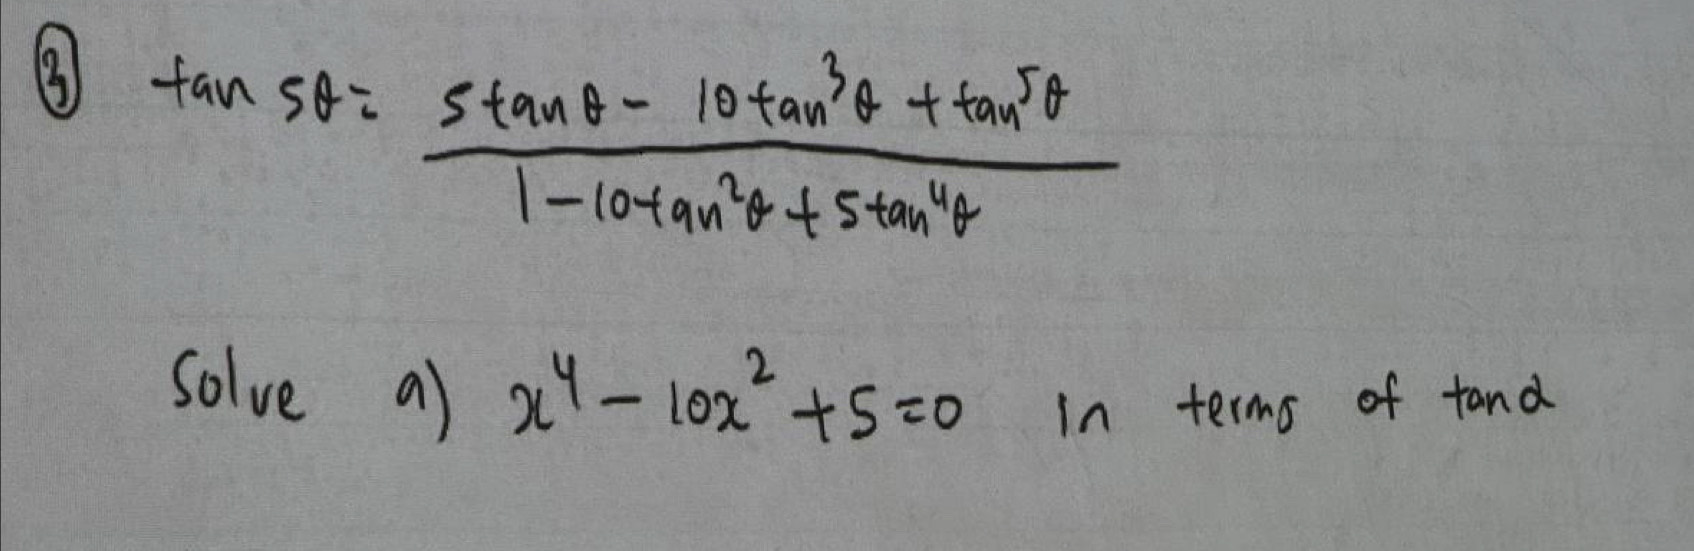 ③ tan 5θ = 5 tan θ - 10 tan³θ + tan⁵θ
1 - 10 tan²θ + 5 tan⁴θ
Solve a) x⁴ - 10x² + 5 = 0 in terms of tan α